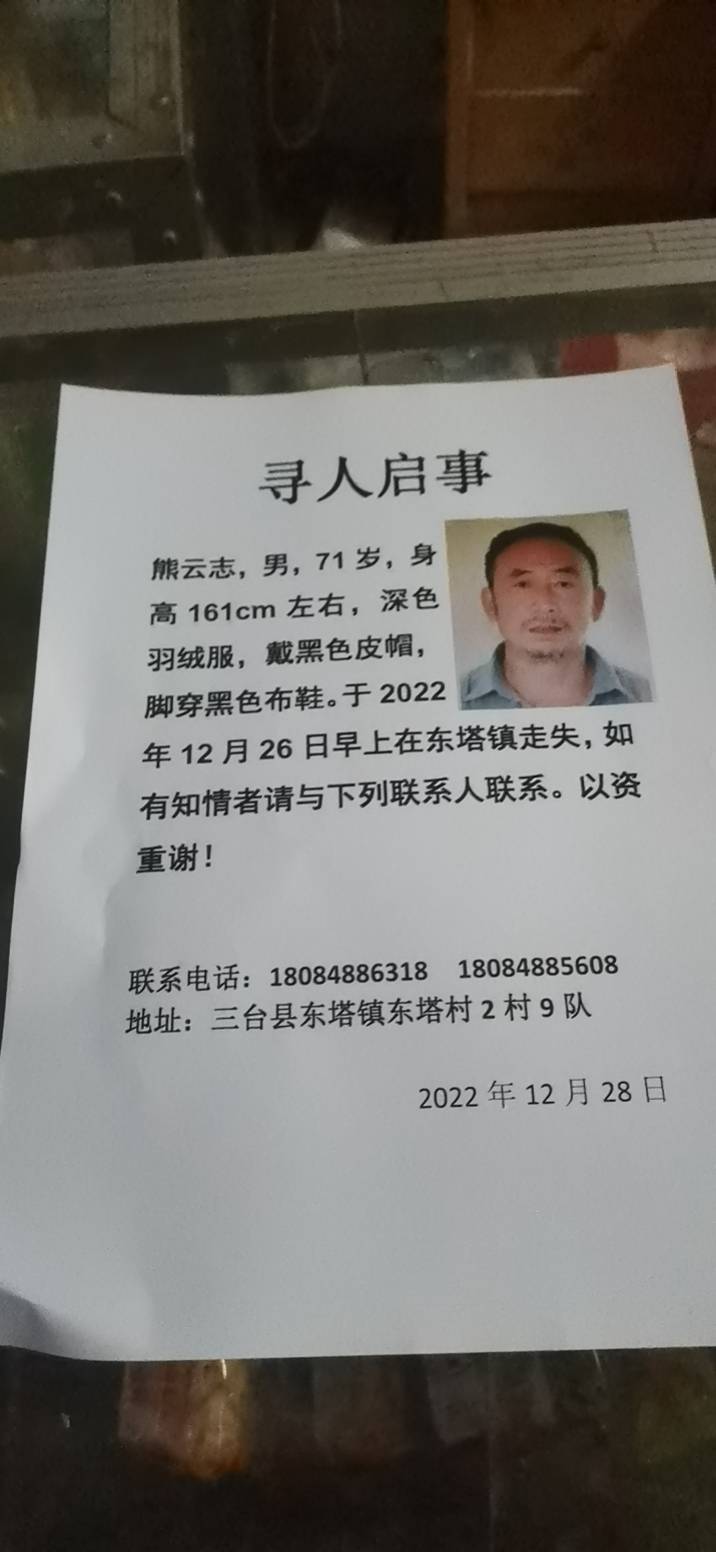 寻人启事
熊云志，男，71 岁，身
高 161cm 左右，深色
羽绒服，戴黑色皮帽，
脚穿黑色布鞋。于 2022
年 12 月 26 日早上在东塔镇走失，如
有知情者请与下列联系人联系。以资
重谢！
联系电话：18084886318 18084885608
地址：三台县东塔镇东塔村 2 村 9 队
2022 年 12 月 28 日